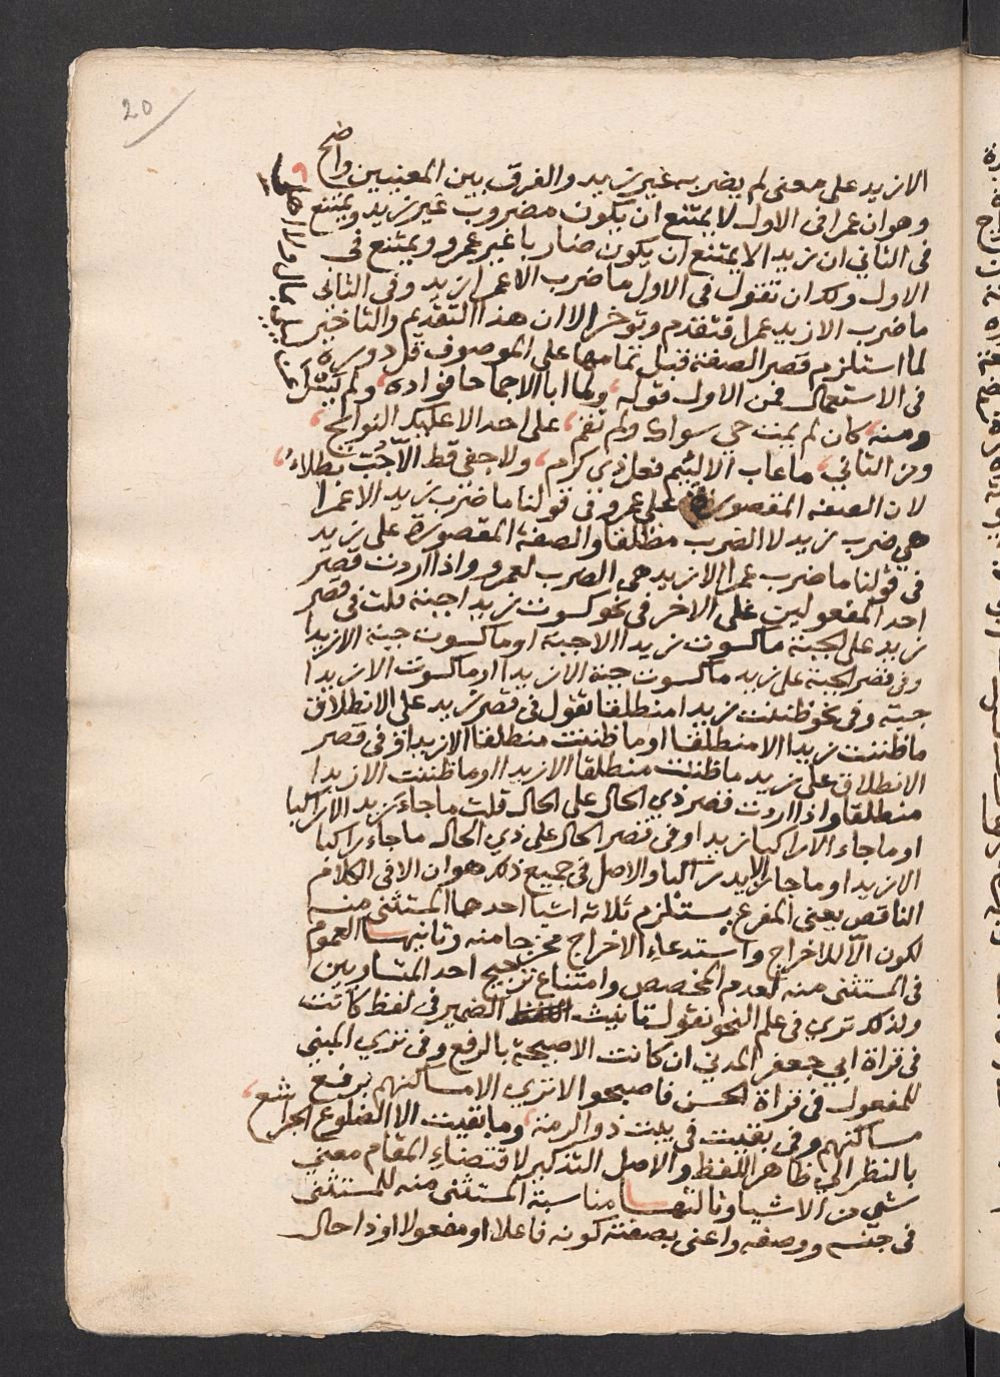 20
الا زيد على معنى لم يضربه غير زيد والفرق بين المعنيين واضح
وهو ان عمرا في الاول لا يمتنع ان يكون مضروب غير زيد ويمتنع
في الثاني ان زيدا لا يمتنع ان يكون ضاربا غير عمرو ويمتنع في
الاول ولك ان تقول في الاول ما ضرب الا عمرا زيد وفي الثاني
ما ضرب الا زيد عمرا فتقدم وتوخر الا ان هذا التقديم والتاخير
لما استلزم قصر الصفة قبل تمامها على الموصوف قل دوره
في الاستعمال فمن الاول قوله ولما ابا الا جماحا فواده ولم يسل
ومنه كان لم يمت حي سواك ولم تقم على احد الا عليك النوايح
ومن الثاني ما عاب الا لئيم فعل ذي كرم ولا جفى قط الا جُبّأ بطلاء
لان الصفه المقصورة على عمرو في قولنا ما ضرب زيد الا عمرا
هي ضرب زيد لا الضرب مطلقا والصفة المقصورة على زيد
في قولنا ما ضرب عمرا الا زيد هي الضرب لعمرو واذا اردت قصر
احد المفعولين على الاخر في نحو كسوت زيدا جبة قلت في قصر
زيد على الجبة ما كسوت زيدا الا جبة او ما كسوت جبة الا زيدا
وفي قصر الجبة على زيد ما كسوت جبة الا زيدا او ما كسوت الا زيدا
جبة وفي نحو ظننت زيدا منطلقا تقول في قصر زيد على الانطلاق
ما ظننت زيدا الا منطلقا او ما ظننت منطلقا الا زيدا وفي قصر
الانطلاق على زيد ما ظننت منطلقا الا زيدا او ما ظننت الا زيدا
منطلقا واذا اردت قصر ذي الحال على الحال قلت ما جاء زيد الا راكبا
او ما جاء الا راكبا زيد او في قصر الحال على ذي الحال ما جاء راكبا
الا زيد او ما جا الا زيد راكبا والاصل في جميع ذلك هو ان الا في الكلام
الناقص يعني المفرغ يستلزم ثلاثه اشيا احدهما المستثنى منه
لكون الا للاخراج واستدعاء الاخراج مخرجا منه وثانيهما العموم
في المستثنى منه لعدم المخصص وامتناع ترجيح احد المتساويين
ولذلك ترى في علم النحو نقول تانيث الضمير في لفظ كانت
في قراة ابي جعفر المدني ان كانت الا صيحة بالرفع وفي تري المبني
للمفعول في قراة الحسن فاصبحوا لا تري الا مساكنهم برفع
مساكنهم وفي بقيت في بيت ذو الرمة وما بقيت الا الضلوع الجراشع
بالنظر الى ظاهر اللفظ والاصل التذكير لاقتضاء المقام معنى
شي من الاشيا وثالثهما مناسبة المستثنى منه للمستثنى
في جنسه ووصفه واعني بصفته كونه فاعلا او مفعولا او ذا حال